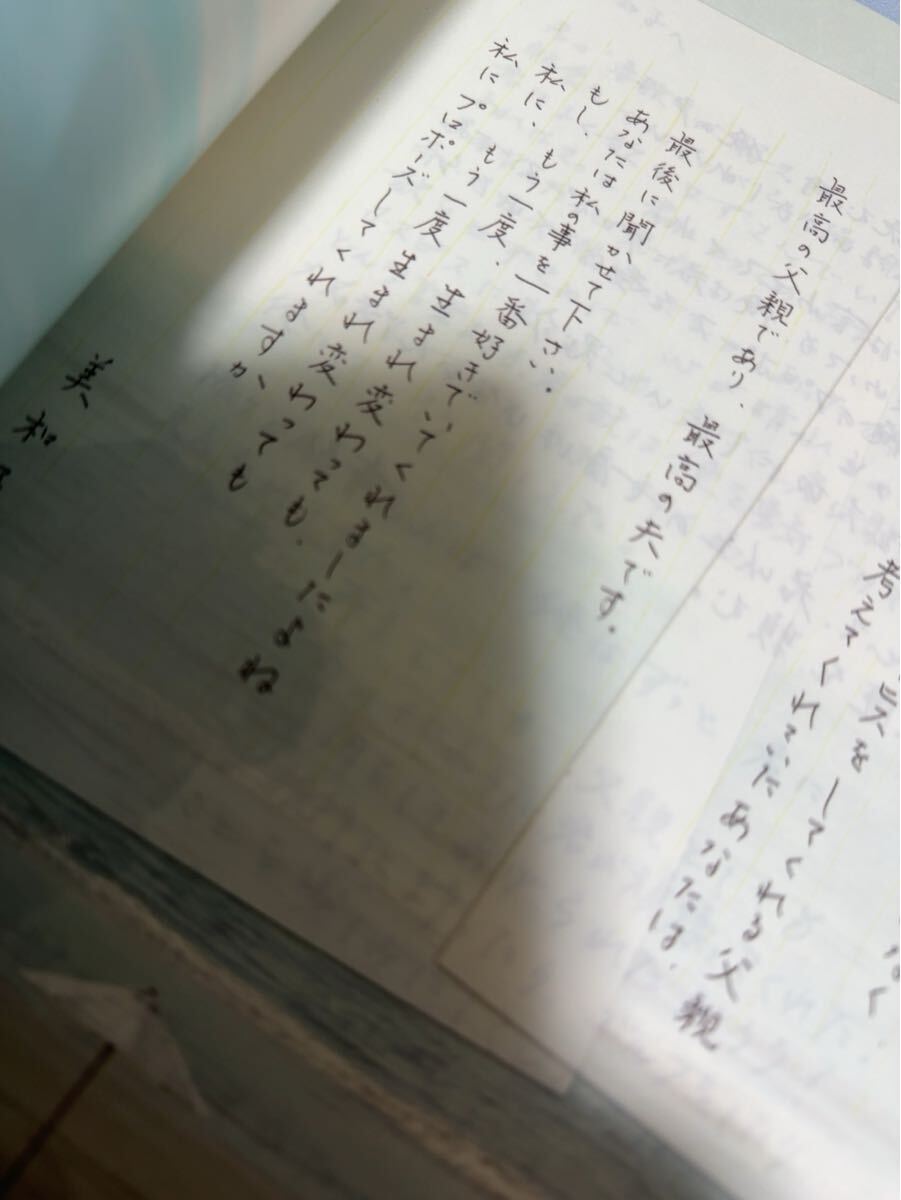 なく
ビスをしてくれる父親
考えてくれていたあなたは、
最高の父親であり、最高の夫です。
最後に聞かせて下さい。
あなたは私の事を一番好きでいてくれましたよね
もし、もう一度、生まれ変わっても、
私に、もう一度 生まれ変わっても
私にプロポーズしてくれますか、
美和